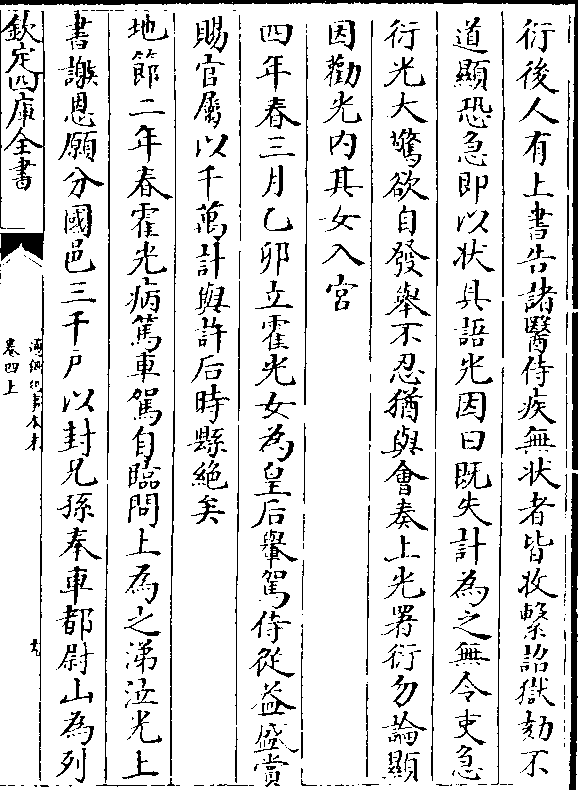 衍後人有上書告諸醫侍疾無狀者皆收繫詔獄劾不
道顯恐急即以狀具語光因曰既失計為之無令吏急
衍光大驚欲自發舉不忍猶與會奏上光署衍勿論顯
因勸光内其女入宮
四年春三月乙卯立霍光女為皇后轝駕侍從益盛賞
賜官屬以千萬計與許后時縣絶矣
地節二年春霍光病篤車駕自臨問上為之涕泣光上
書謝恩願分國邑三千戸以封兄孫奉車都尉山為列
欽定四庫全書
卷四上